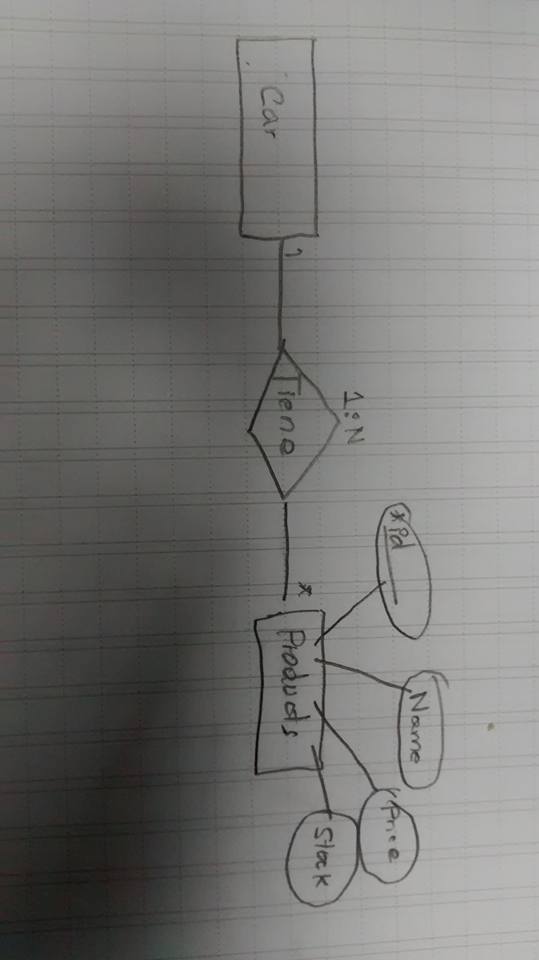 Car
1
1:N
Tiene
*
Products
*id
Name
Price
Stock